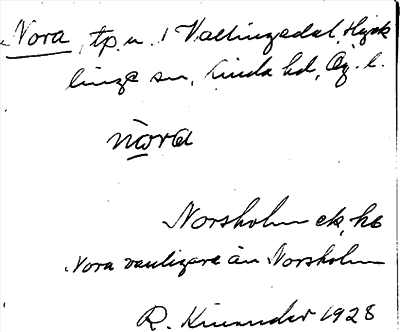 Nora, tp. u. 1 Vallingedal, Hyck
linge sn, Kinda hd, Ög. l.
nora
Norsholm ek, ho
Nora vanligare än Norsholm
R. Kinander 1928